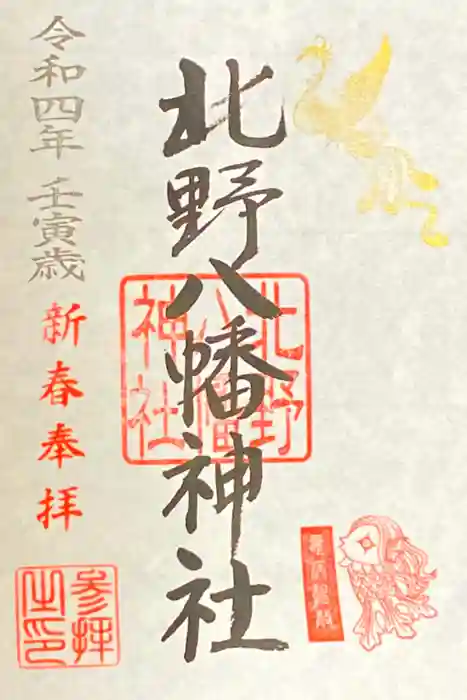 北野八幡神社
北野
八幡
神社
令和四年 壬寅歳
新春奉拝
参拝
之印